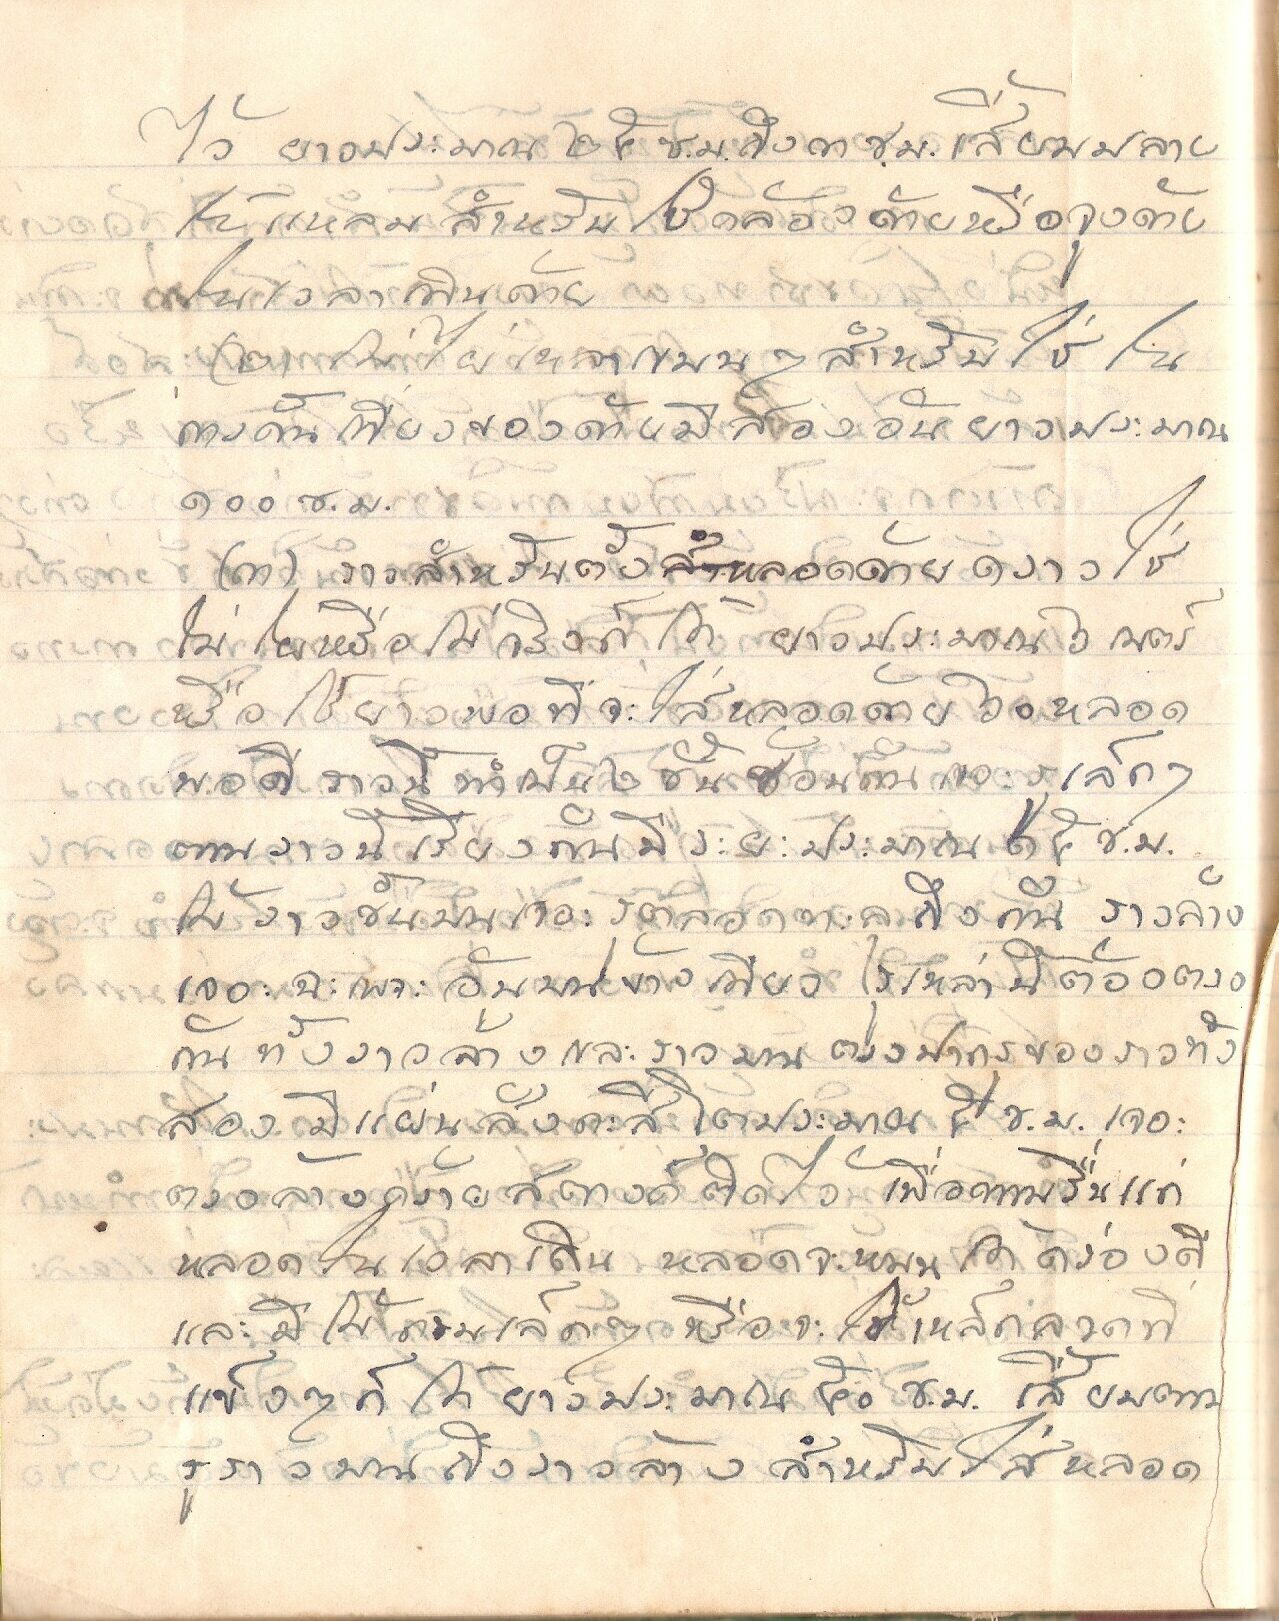 ไว้ ยาวประมาณ ๒๕ ซ.ม. ถึง ๓๐ ซ.ม. เสี้ยมปลาย
ให้แหลม สำหรับใช้คล้องด้ายหรือจูงด้าย
ในเวลาเดินด้าย
(๒) ไม้ไผ่เหลาแบนๆ สำหรับใช้ใน
ทางด้นเพียงของด้ายมีสองอันยาวประมาณ
๑๐๐ ซ.ม.
(๓) ราวสำหรับตั้งหลอดด้าย ราวใช้
ไม้ไผ่หรือไม้จริงก็ได้ ยาวประมาณ ๖ เมตร์
หรือใช้ยาวพอที่จะใส่หลอดด้าย ๖๐ หลอด
พอดี ราวนี้ทำเป็น ๒ ชั้นซ้อนกัน เจาะรูเล็กๆ
ตามราวนี้เรียงกันมีระยะประมาณ ๑๕ ซ.ม.
ไม้ราวชั้นบนเจาะรูตลอดทะลุถึงกัน ราวล่าง
เจาะฉะเพาะอันบนข้างเดียว รูเหล่านี้ต้องตรง
กันทั้งราวล่างและราวบน ตรงปากรูของราวทั้ง
สองมีแผ่นสังกะสีโตประมาณ ๕ ซ.ม. เจาะ
ตรงกลางคล้ายสตางค์ติดไว้ เพื่อความรื่นแก่
หลอดในเวลาเดิน หลอดจะหมุนได้คล่องดี
และมีไม้กลมเล็กๆ หรือจะใช้เหล็กลวดที่
แข็งๆ ก็ได้ ยาวประมาณ ๕๐ ซ.ม. เสี้ยมตาม
รูราวบนถึงราวล่าง สำหรับใส่หลอด